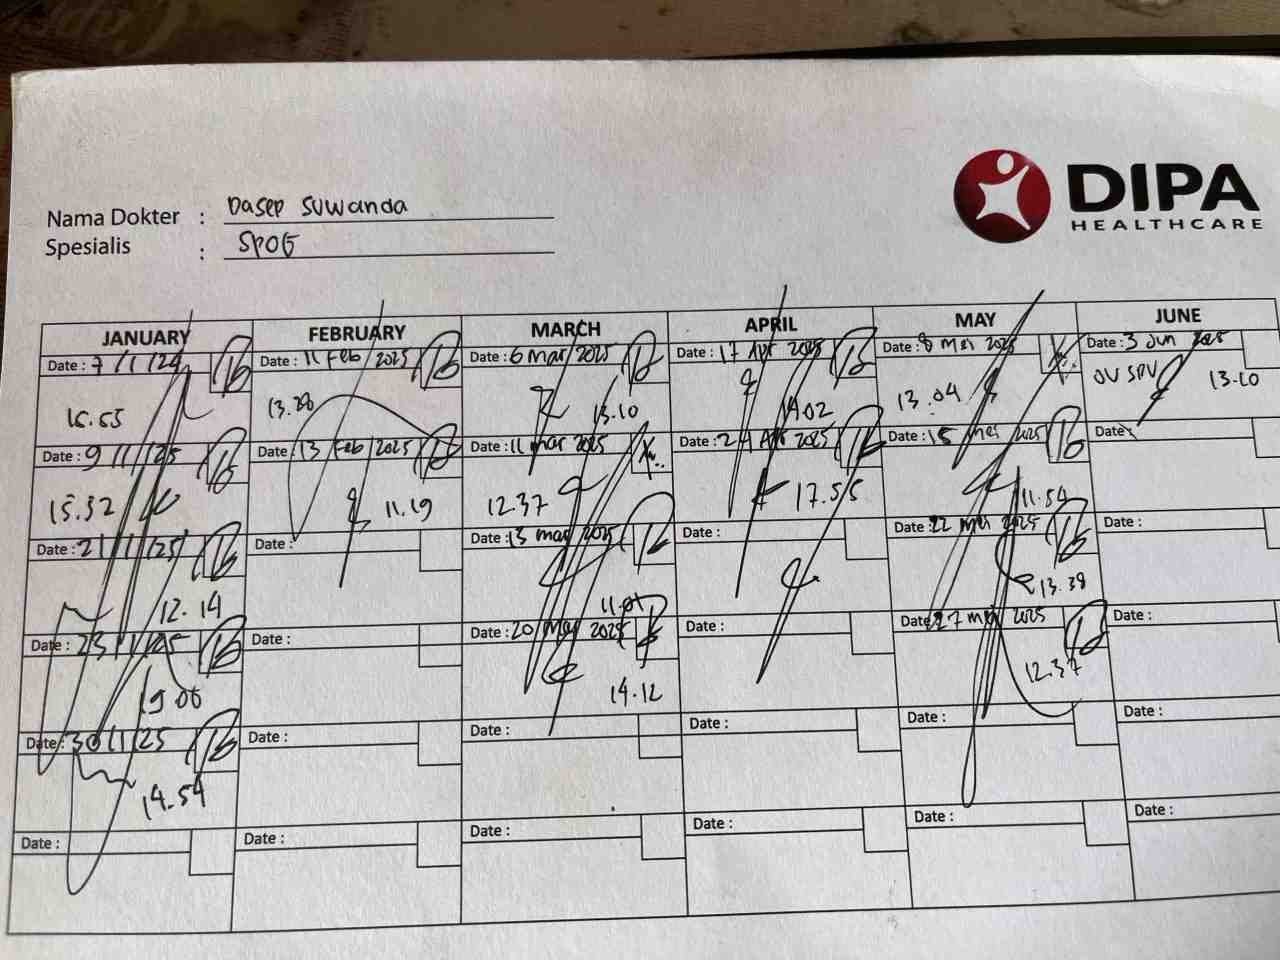 DIPA
HEALTHCARE
Nama Dokter : Dasep Suwanda
Spesialis : SPOG
JANUARY FEBRUARY MARCH APRIL MAY JUNE
Date : 7/1/24 Date : 11 Feb 2025 Date : 6 Mar 2025 Date : 17 Apr 2025 Date : 8 Mei 2025 Date : 3 Jun 2025
16.55 13.28 13.10 14.02 13.04 OV SPV 13.10
Date : 9/1/25 Date : 13 Feb 2025 Date : 11 mar 2025 Date : 24 Apr 2025 Date : 15 mei 2025 Date :
15.32 11.19 12.37 17.55 11.54
Date : 21/1/25 Date : Date : 13 mar 2025 Date : Date : 22 mei 2025 Date :
12.14 11.01 13.38
Date : 23/1/25 Date : Date : 20 Mar 2025 Date : Date : 27 mei 2025 Date :
19.00 14.12 12.37
Date : 30/1/25 Date : Date : Date : Date : Date :
14.54
Date : Date : Date : Date : Date : Date :